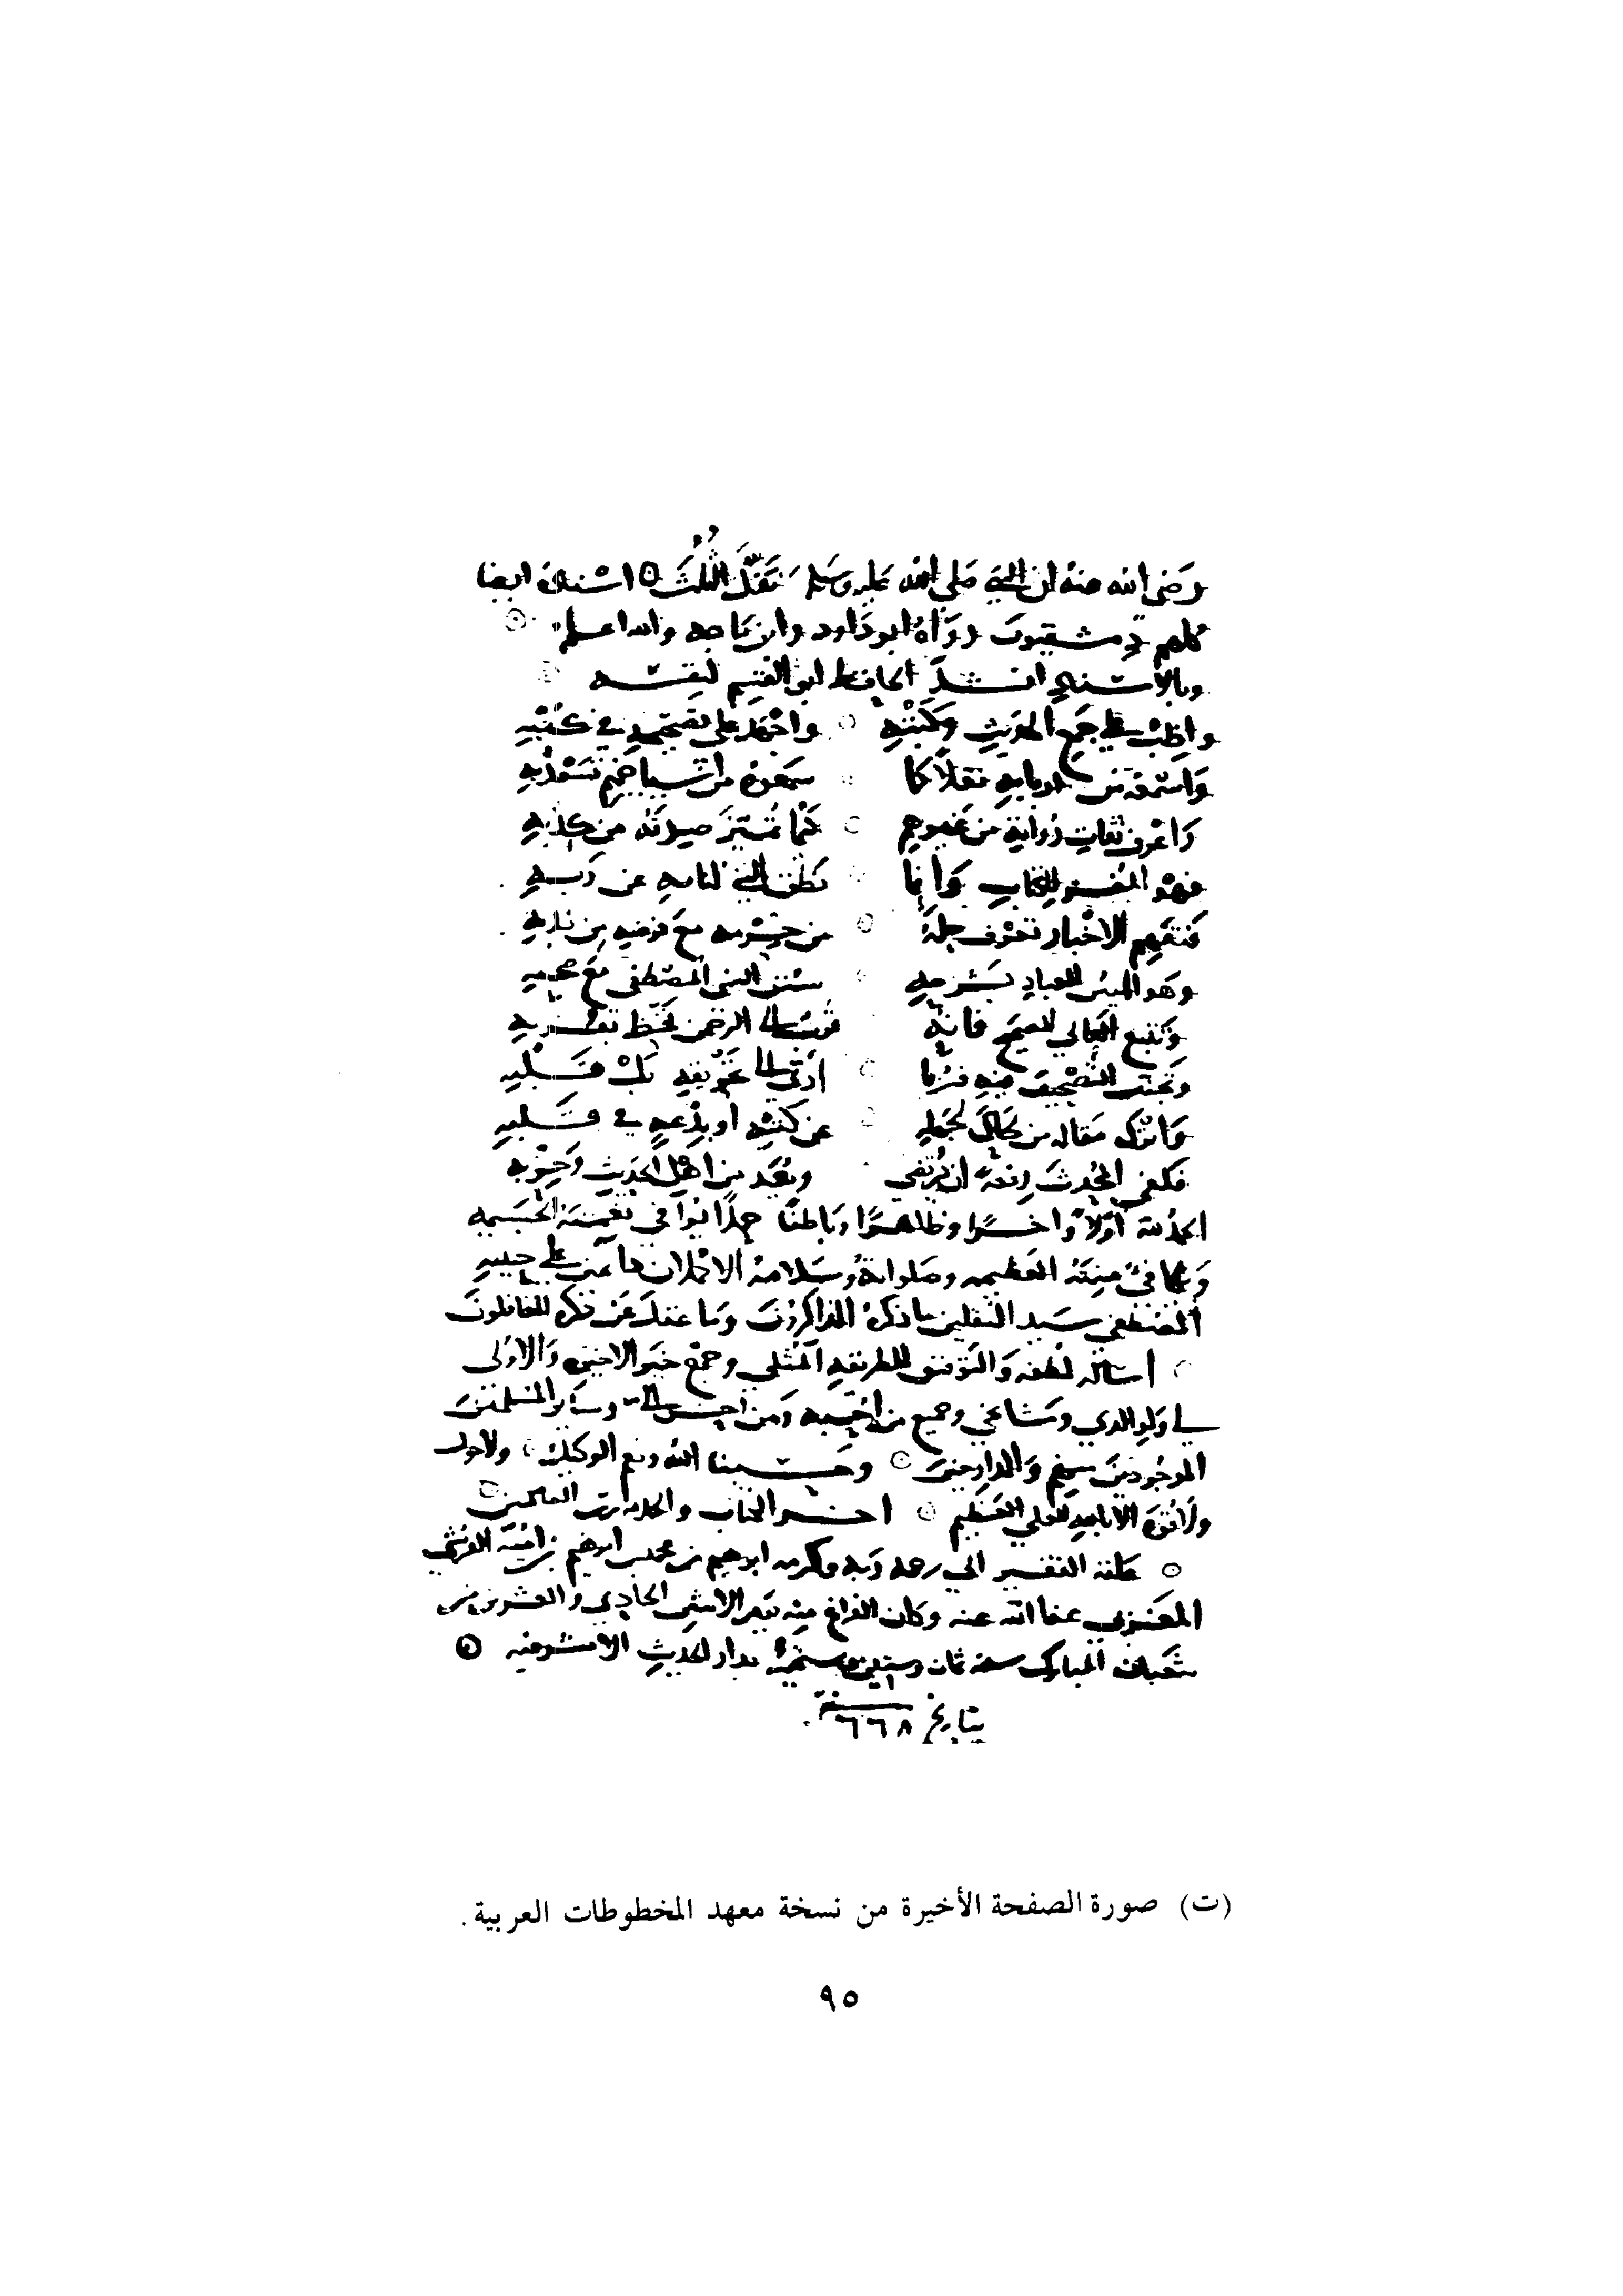 رضي الله عنه ان النبي صلى الله عليه وسلم نفل الثلث ⊙ اسناده ايضا
كلهم دمشقيون رواه ابو داود وابن ماجه والله اعلم
وبالاسناد انشد الحافظ ابو القسم لنفسه
واظب على جمع الحديث وكتبه واجهد على تصحيحه في كتبه
واسمعه من اربابه نقلا كما سمعوه من اشياخهم تسعد به
واعرف ثقات رواته من غيرهم كيما تميز صدقه من كذبه
فهو المفسر للكتاب وانما نطق النبي لنا به عن ربه
فتفهم الاخبار تعرف حله من حرمه مع فرضه من ندبه
وهو المبين للعباد بشرحه سنن النبي المصطفى مع صحبه
وتتبع العالي الصحيح فانه قرب الى الرحمن تحظ بقربه
وتجنب التصحيف فيه فربما ادى الى تحريفه بل قلبه
واترك مقاله من لحاك لجهله عن كتبه او بدعه في قلبه
فكفى المحدث رفعة ان يرتضى ويعد من اهل الحديث وحزبه
الحمد لله اولا واخرا وظاهرا وباطنا حمدا يوافي نعمه الجسيمه
ويكافئ مننه العظيمه وصلواته وسلامه الاكملان على حبيبه
المصطفى سيد الثقلين ما ذكره الذاكرون وما غفل عن ذكره الغافلون
اساله لطفه والتوفيق للطريقه المثلى وجمع خير الاخرة والاولى
لي ولوالدي ومشايخي وجميع من احبه ومن احسن الي وساير المسلمين
الموجودين منهم والدارجين ⊙ وحسبنا الله ونعم الوكيل ولا حول
ولا قوة الا بالله العلي العظيم ⊙ اخر الكتاب والحمد لله رب العالمين
⊙ علقه الفقير الى رحمه ربه وكرمه ابرهيم بن محمد بن ابرهيم القرشي
عفا الله عنه وكان الفراغ منه الاثنين الحادي والعشرين من
شعبان المبارك سنة ثمان وستين وستمئة بدار الحديث الاشرفيه ⊙
بتاريخ سنة ٦٦٨
(ت) صورة الصفحة الأخيرة من نسخة معهد المخطوطات العربية.
٩٥